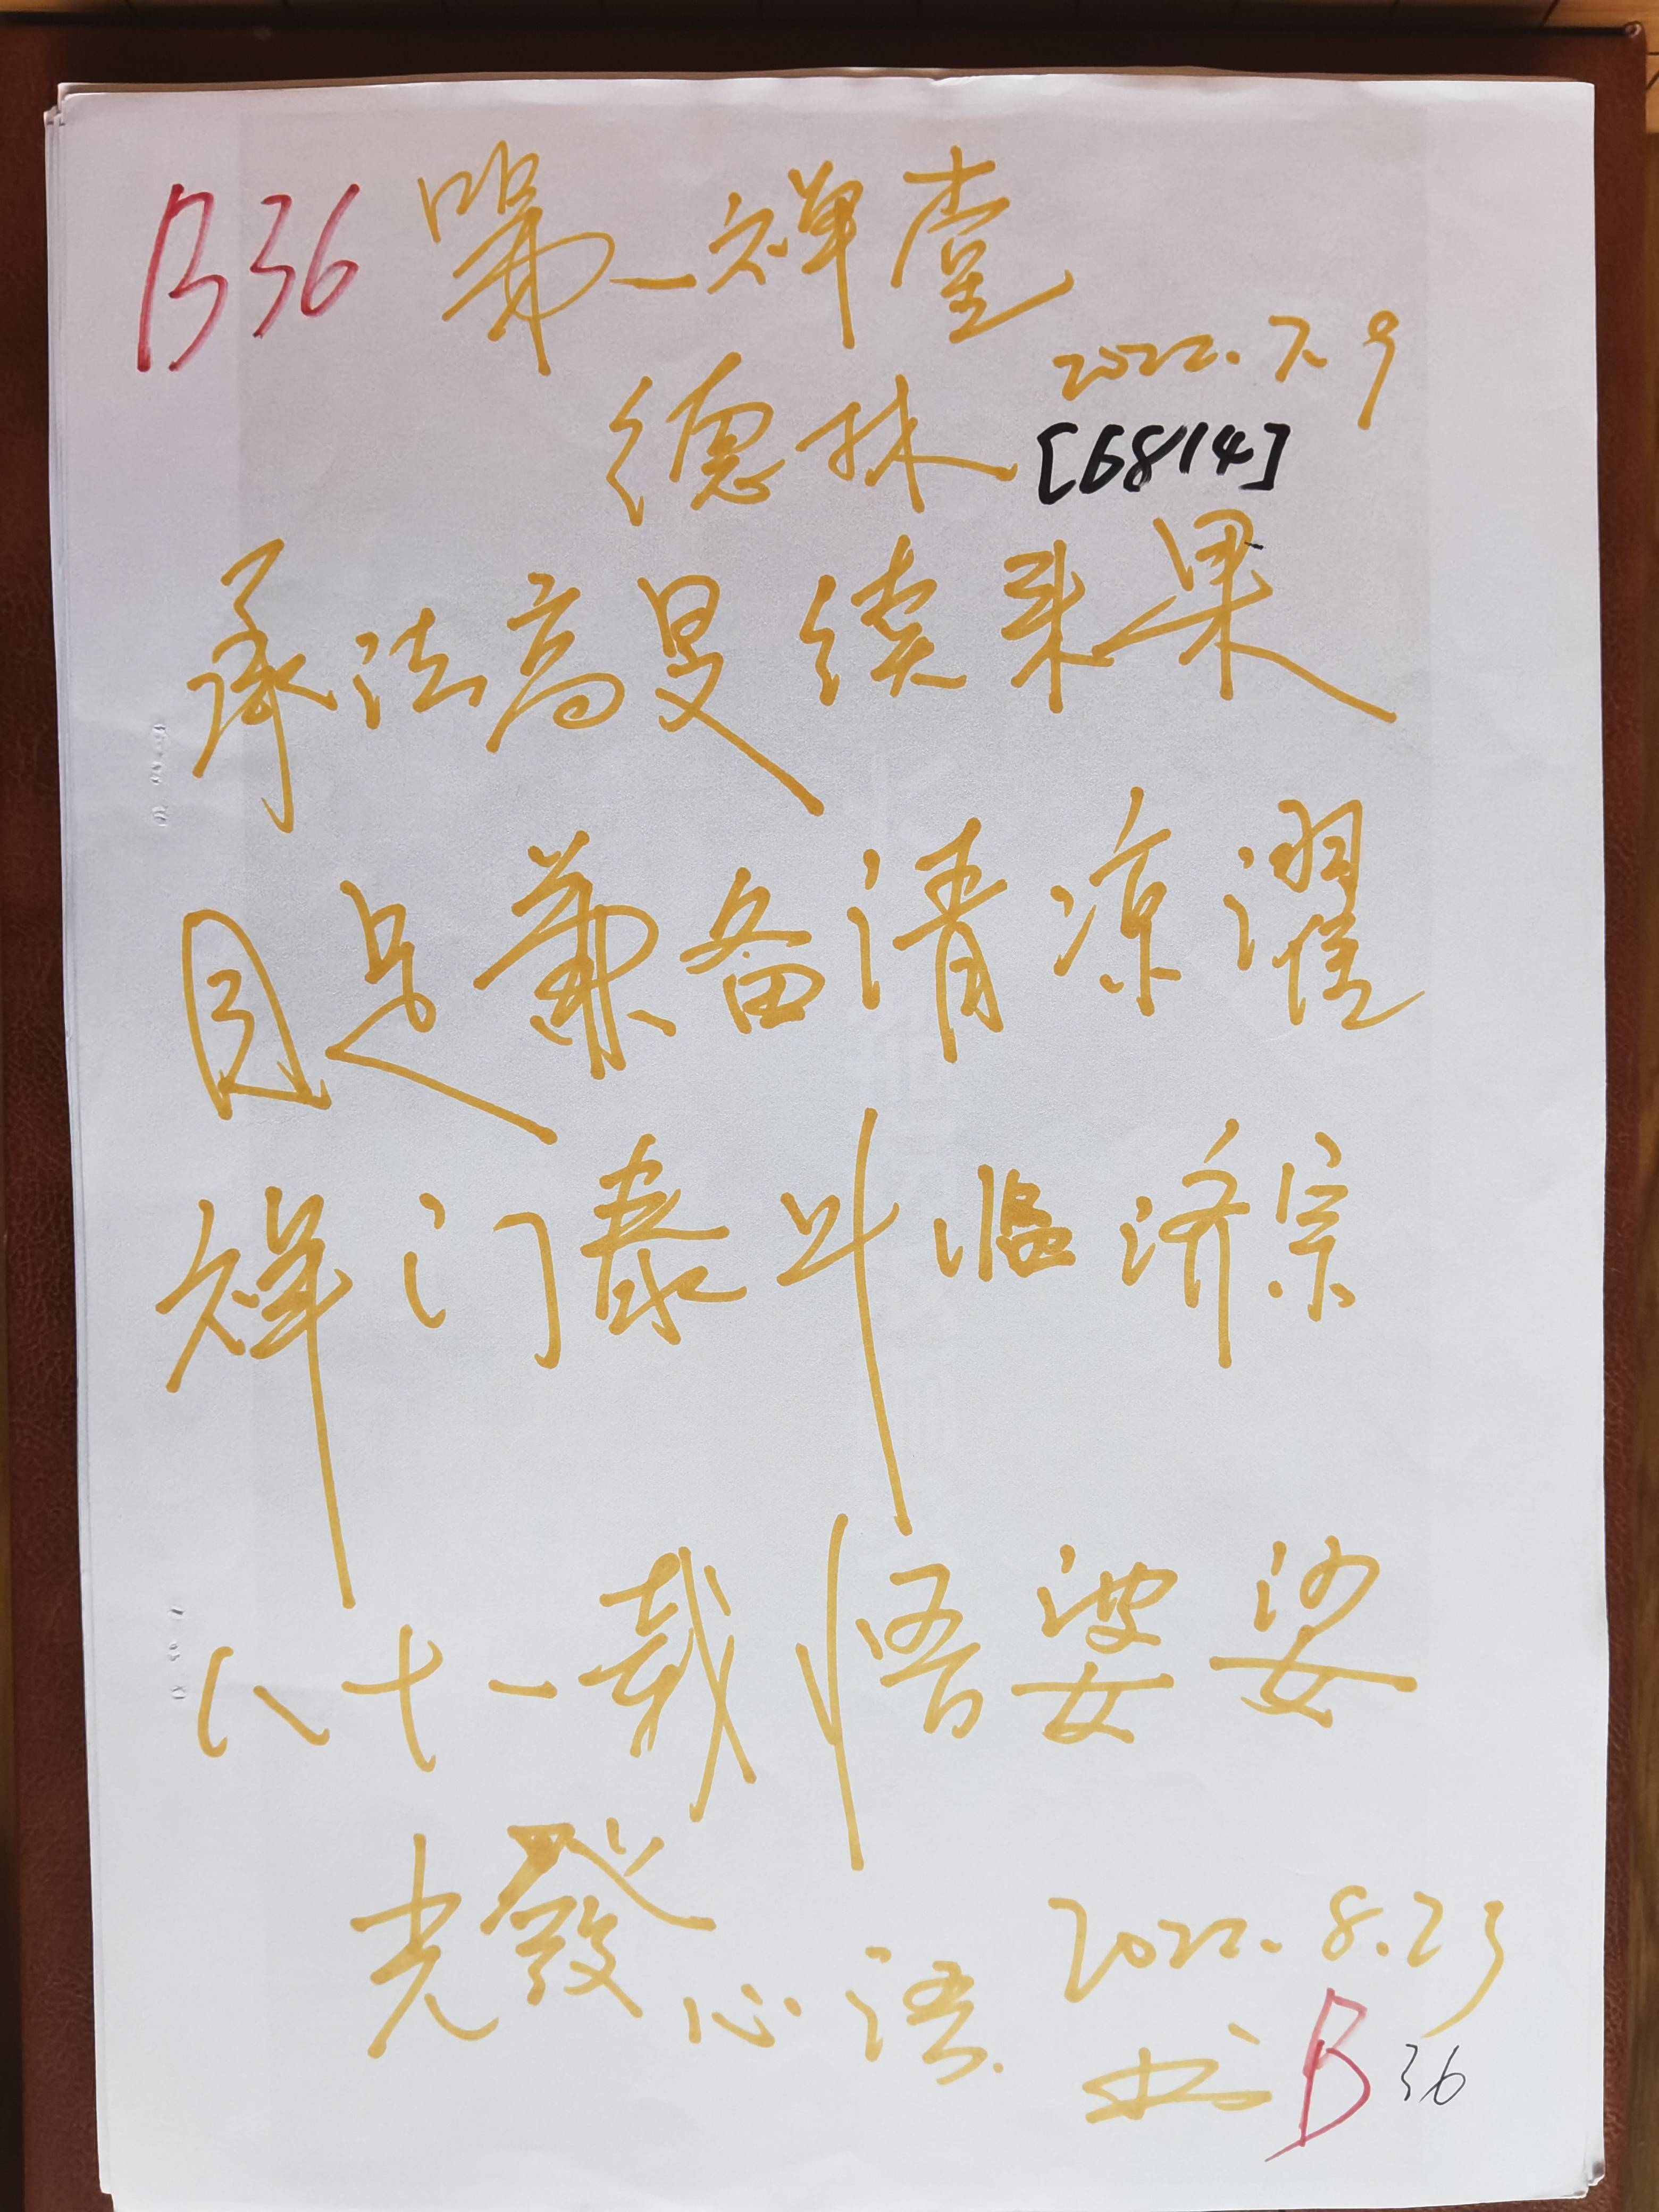 B36 第一禅堂
2022.7.9
德林 [6814]
承法高旻续来果
目足兼备清凉濯
禅门泰斗临济宗
八十一载悟婆娑
光發心语 2022.8.23
书 B 36